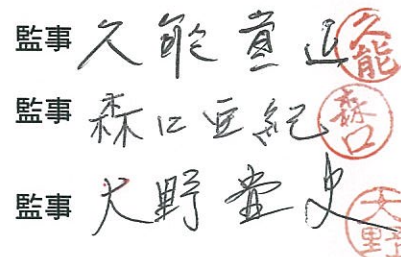 監事 久能 久能
監事 森口亜紀 森口
監事 大野 大野